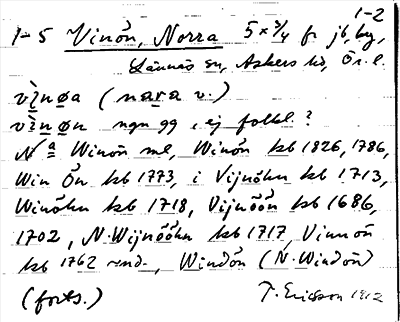 1-2
1-5 Vinön, Norra 5 x 3/4 fr jb, by,
Lännäs sn, Askers hd, Ör. l.
vìnøa (nara v.)
vìnøn ngn gg, ej folkl?
Nª Winön ml, Winön kb 1826, 1786,
Win Ön kb 1773, i Vijnöhn kb 1713,
Winöhn kb 1718, Vijnöön kb 1686,
1702, N. Wijnööhn kb 1717, Vinnön
kb 1762 , Windön (N. Windön)
(forts.) T. Ericsson 1912